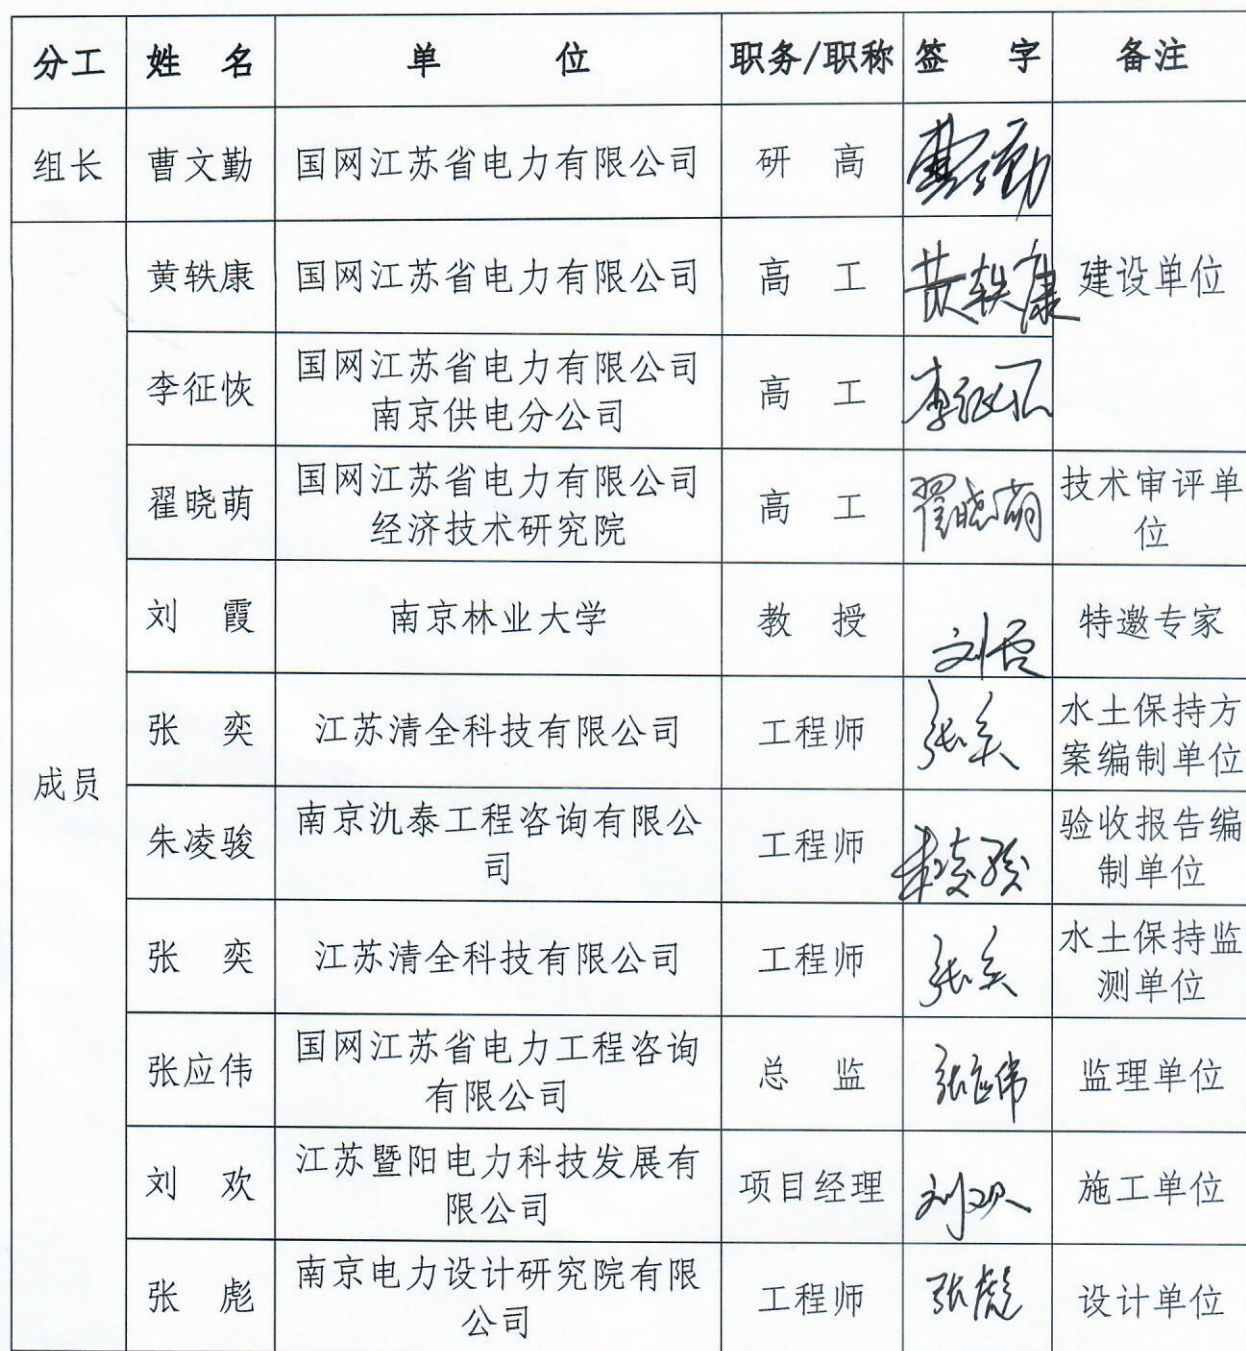 分工 姓 名 单 位 职务/职称 签 字 备注
组长 曹文勤 国网江苏省电力有限公司 研 高 曹文勤
黄轶康 国网江苏省电力有限公司 高 工 黄轶康 建设单位
李征恢 国网江苏省电力有限公司
南京供电分公司 高 工 李征恢
翟晓萌 国网江苏省电力有限公司
经济技术研究院 高 工 翟晓萌 技术审评单
位
刘 霞 南京林业大学 教 授 刘霞 特邀专家
成员
张 奕 江苏清全科技有限公司 工程师 张奕 水土保持方
案编制单位
朱凌骏 南京氿泰工程咨询有限公
司 工程师 朱凌骏 验收报告编
制单位
张 奕 江苏清全科技有限公司 工程师 张奕 水土保持监
测单位
张应伟 国网江苏省电力工程咨询
有限公司 总 监 张应伟 监理单位
刘 欢 江苏暨阳电力科技发展有
限公司 项目经理 刘欢 施工单位
张 彪 南京电力设计研究院有限
公司 工程师 张彪 设计单位